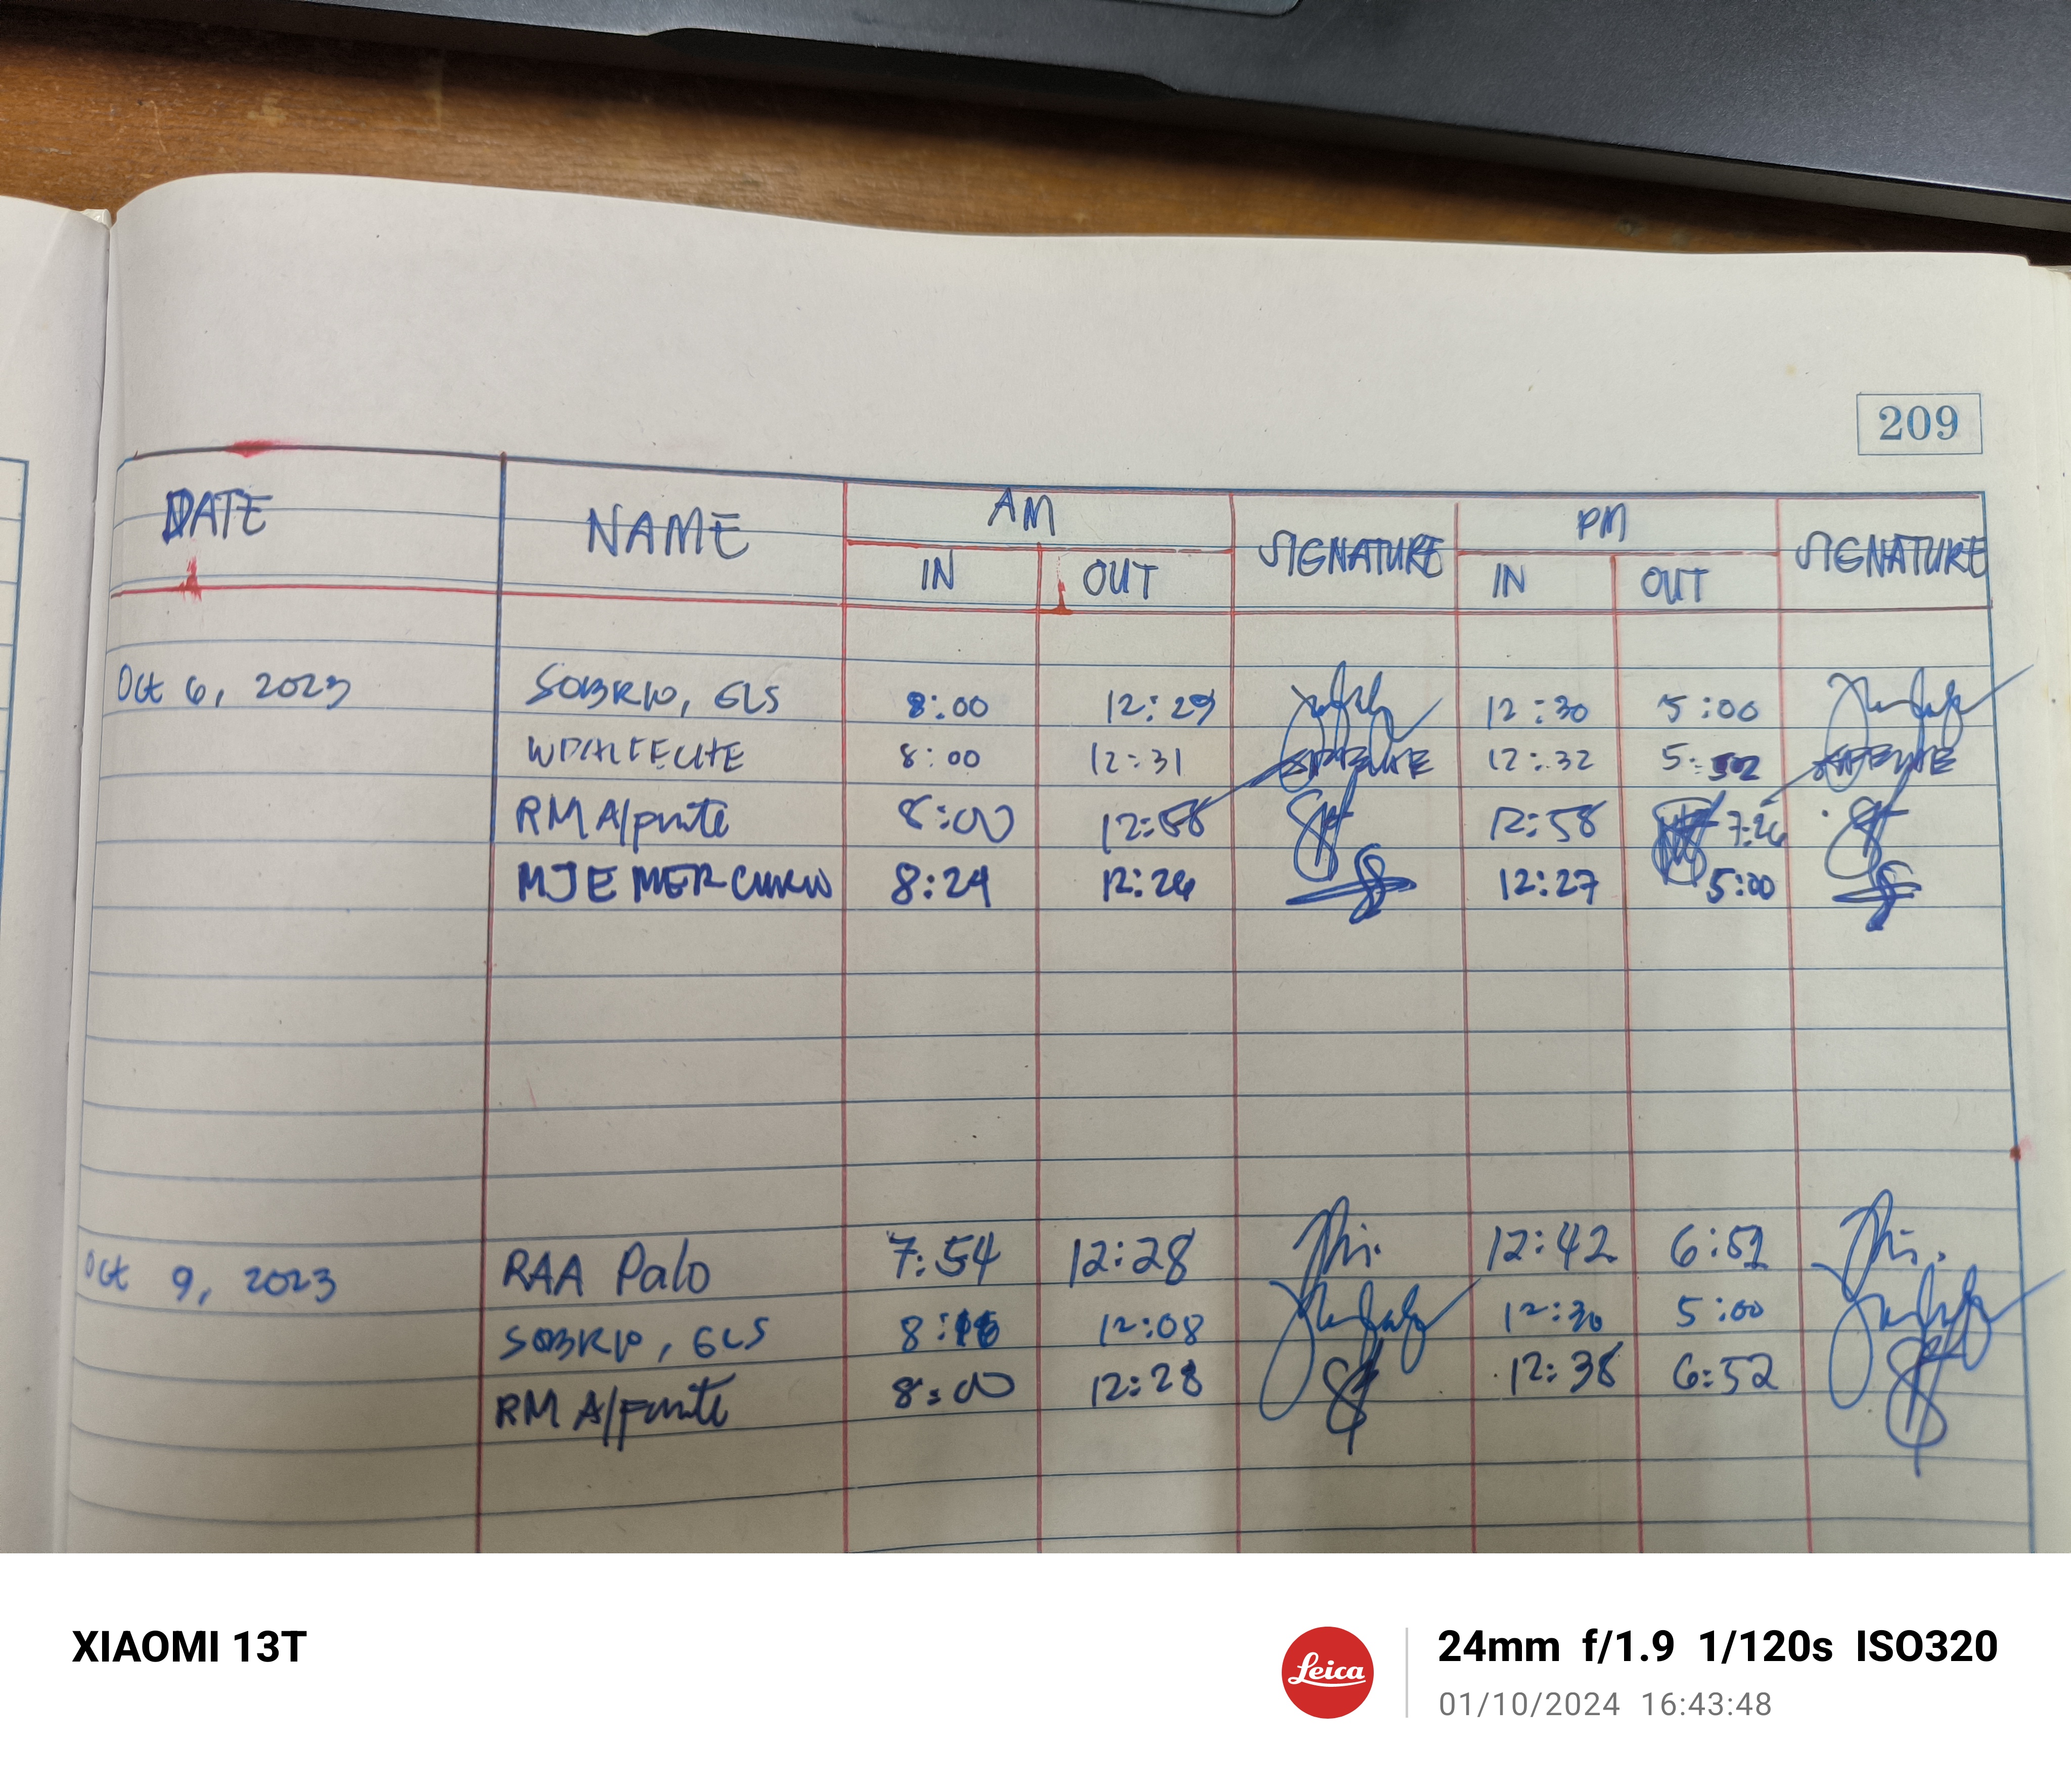 209
DATE NAME AM SIGNATURE PM SIGNATURE
IN OUT IN OUT
Oct 6, 2023 SOBRIO, GLS 8:00 12:29 12:30 5:00
8:00 12:31 12:32 5:52
RM Alpunte 8:00 12:58 12:58 7:26
MJE MERCURIO 8:24 12:26 12:27 5:00
Oct 9, 2023 RAA Palo 7:54 12:28 12:42 6:52
SOBRIO, GLS 12:08 12:30 5:00
RM Alpunte 8:00 12:28 12:38 6:52
XIAOMI 13T
Leica
24mm f/1.9 1/120s ISO320
01/10/2024 16:43:48